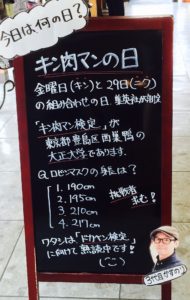 今日は何の日?
キン肉マンの日
金曜日(キン)と29日(ニク)
の組み合わせの日。集英社が制定
「キン肉マン検定」が
東京都豊島区西巣鴨の
大正大学であります。
Q.ロビンマスクの身長は?
1. 190cm
2. 195cm
3. 210cm
4. 217cm
挑戦者
求む!
ワタシは「ドカベン検定」
に向けて熱読中です!
3代目かずのり